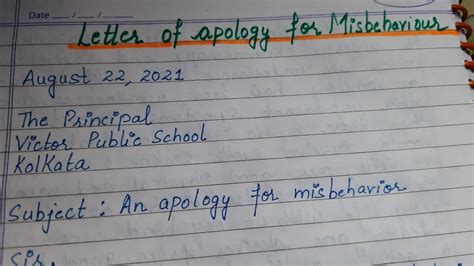 Date __/__/__
Letter of apology for Misbehaviour
August 22, 2021
The Principal
Victor Public School
Kolkata
Subject: An apology for misbehavior
Sir,